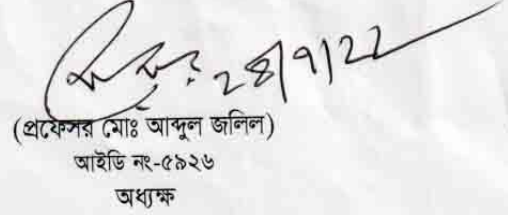 ২৪/৭/২২
(প্রফেসর মোঃ আব্দুল জলিল)
আইডি নং-৫৯২৬
অধ্যক্ষ